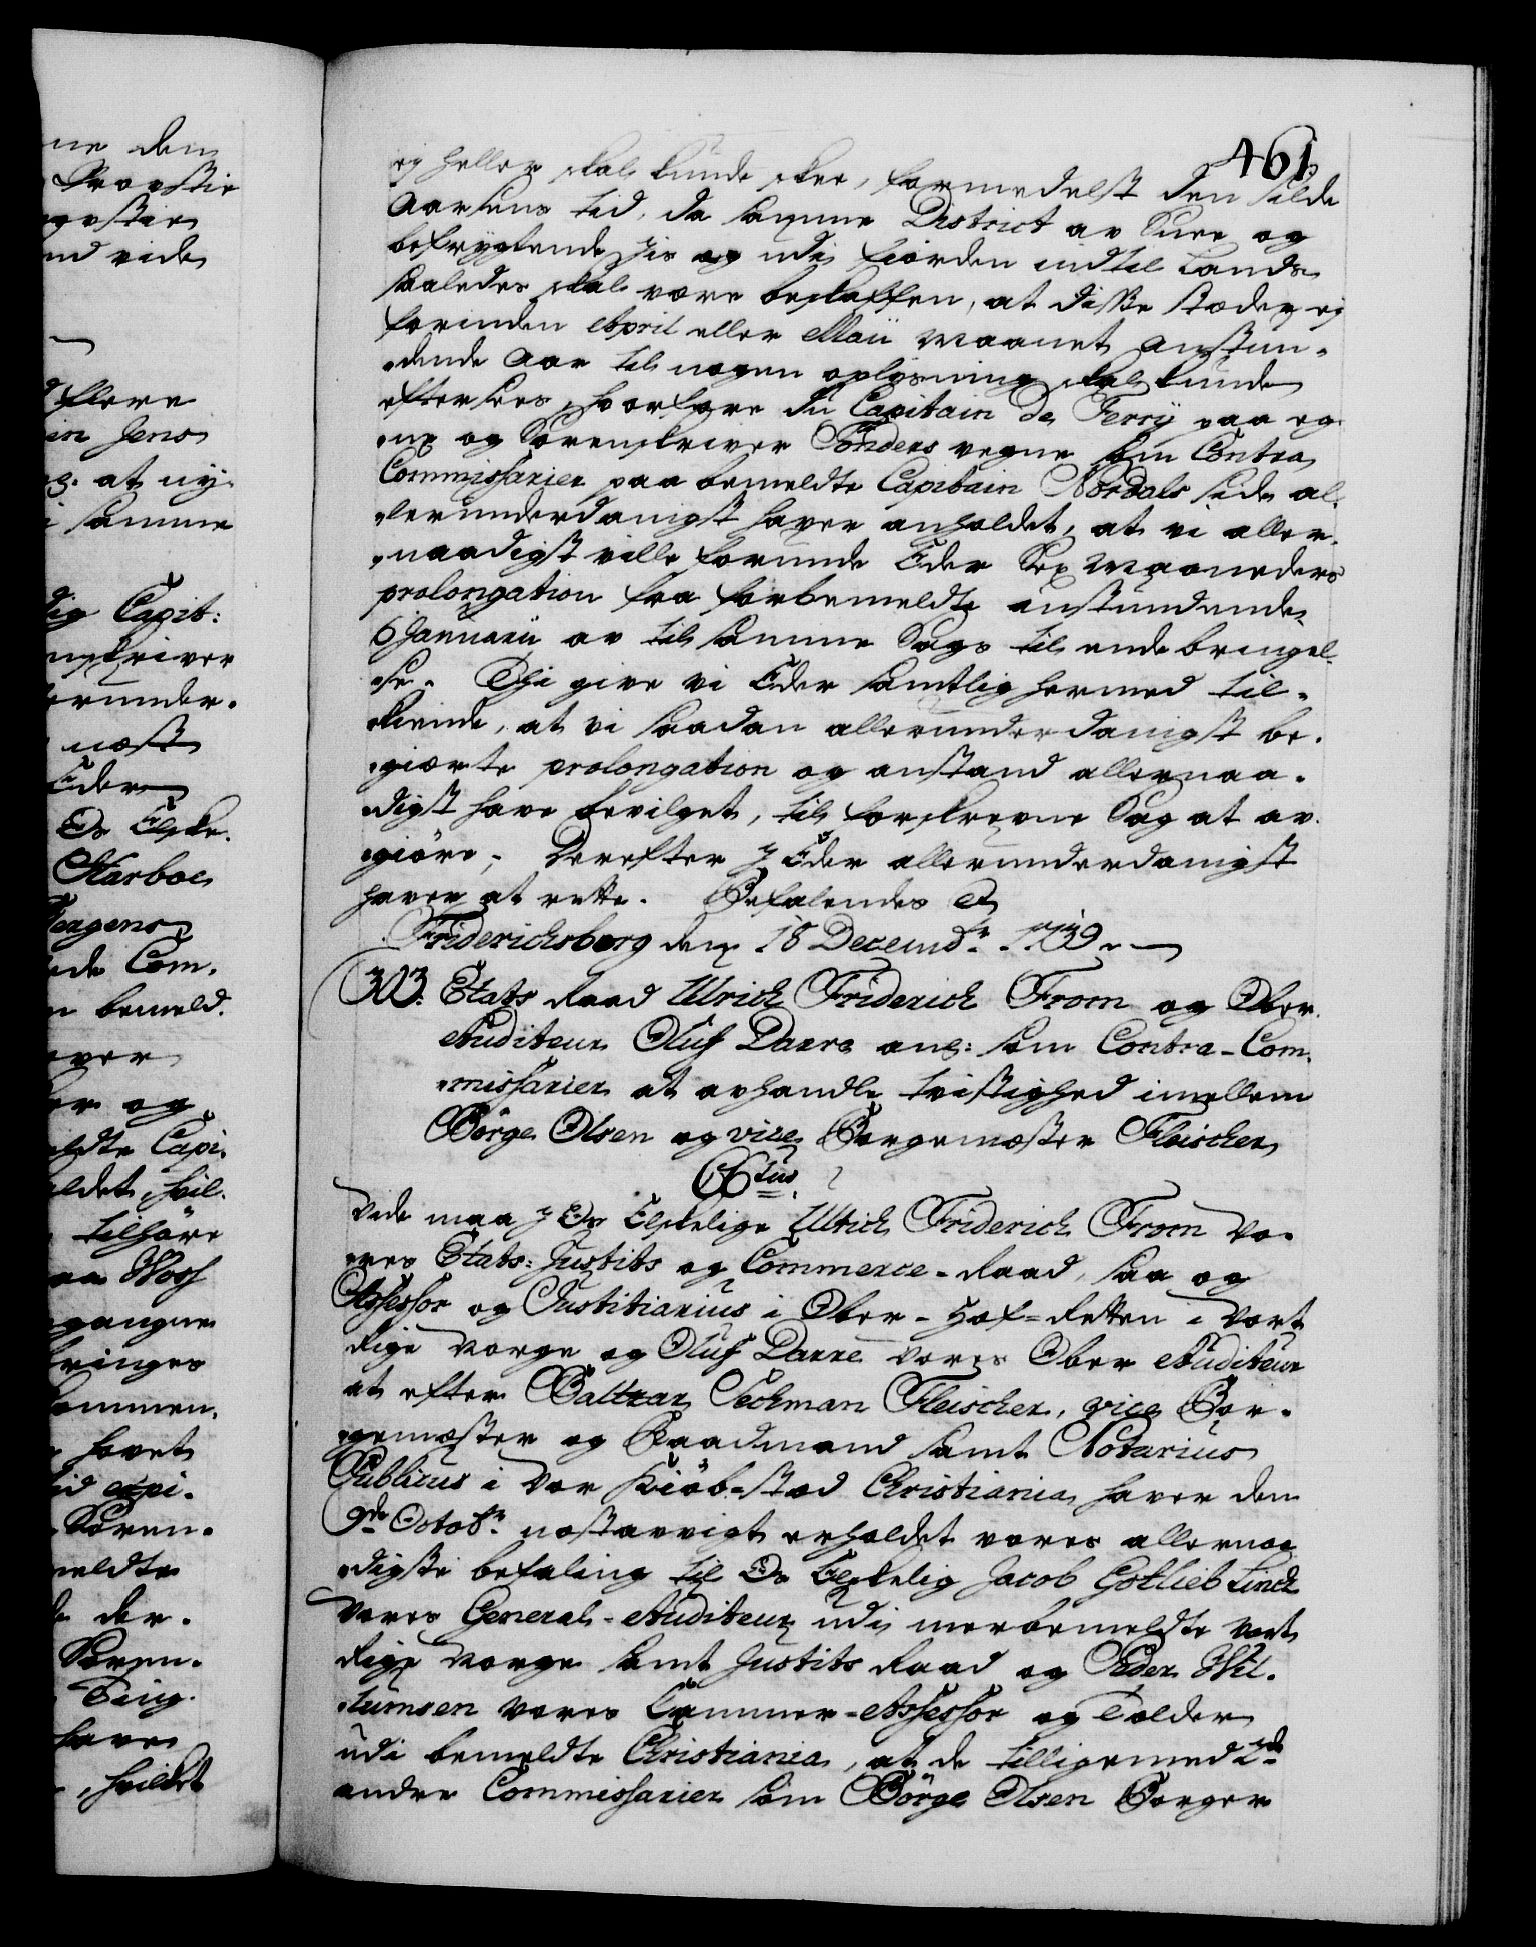 461
ej heller skal kunde skee, formedelst den silde
Aarsens tid, da samme District av Snee og
befrygtende Jis og udi fiorden indtil Lands
saaledes skal være beskaffen, at diße stæder ej
forinden April eller Maii maanet anstun-
dende Aar til nogen oplysning skal kunde
efterseès, hvorfore du Capitain de Ferrÿ paa eg-
ne og Sorenskriver Tønders vegne som Contra
Commissarier paa bemeldte Capitain Nordals side al-
lerunderdanigst haver anholdet, at vi aller-
naadigst ville forunde Eder Sex maaneders
prolongation fra forbemeldte anstundende
6 Januarii av til samme Sags til ende bringel-
se. Thi give vi Eder samtlig hermed til-
kiende, at vi saadan allerunderdanigst be-
giærte prolongation og anstand allernaa-
digst have bevilget, til forskrevne Sag at av-
giöre; Derefter I Eder allerunderdanigst
haver at rette. Befalendes etc
Friderichsberg den 18 Decembr. 1739.
303. Etats Raad Ulrich Friderich From og Ober-
Auditeur Oluf Darre ang: som Contra-Com-
missarier at avhandle tvistighed imellem
Börge Olsen og vice Borgemester Fleischer
C 6tus.
Vide maa I Os Elskelige Ulrich Friderich From Vo-
res Etats: Justits og Commerce-Raad, saa og
Assessor og Justitiarius i Ober-Hof-Retten i Vort
Rige Norge og Oluf Darre vores Ober Auditeur
at efter Baltzar Sechman Fleischer, vice Bor-
gemester og Raadmand samt Notarius
Publicus i vor Kiöb-stæd Christiania haver den
9de Octobr. næstavvigt erholdet vores allernaa-
digste befaling til Os Elskelig Jacob Gotlieb Linde
vores General-Auditeur udi merbemeldte vort
Rige Norge samt Justits Raad og Peder Wil-
lumsen vores Cammer-Assessor og Tolder
udi bemeldte Christiania, at de tilligemed 2de
andre Commissarier som Börge Olsen Borger